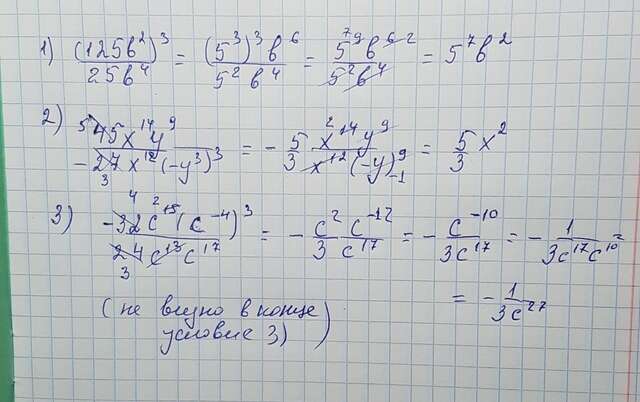 1) (125в²)³ / 25в⁴ = (5³)³в⁶ / 5²в⁴ = 5⁹в⁶ / 5²в⁴ = 5⁷в²
2) 45x¹⁴y⁹ / -27x¹²(-y³)³ = - 5/3 x¹⁴y⁹ / x¹²(-y)⁹ = 5/3 x²
3) -32c¹⁵(c⁻⁴)³ / 24c¹³c¹⁷ = - c²c⁻¹² / 3c¹⁷ = - c⁻¹⁰ / 3c¹⁷ = - 1 / 3c¹⁷c¹⁰ =
= - 1 / 3c²⁷
(не видно в конце
условие 3)